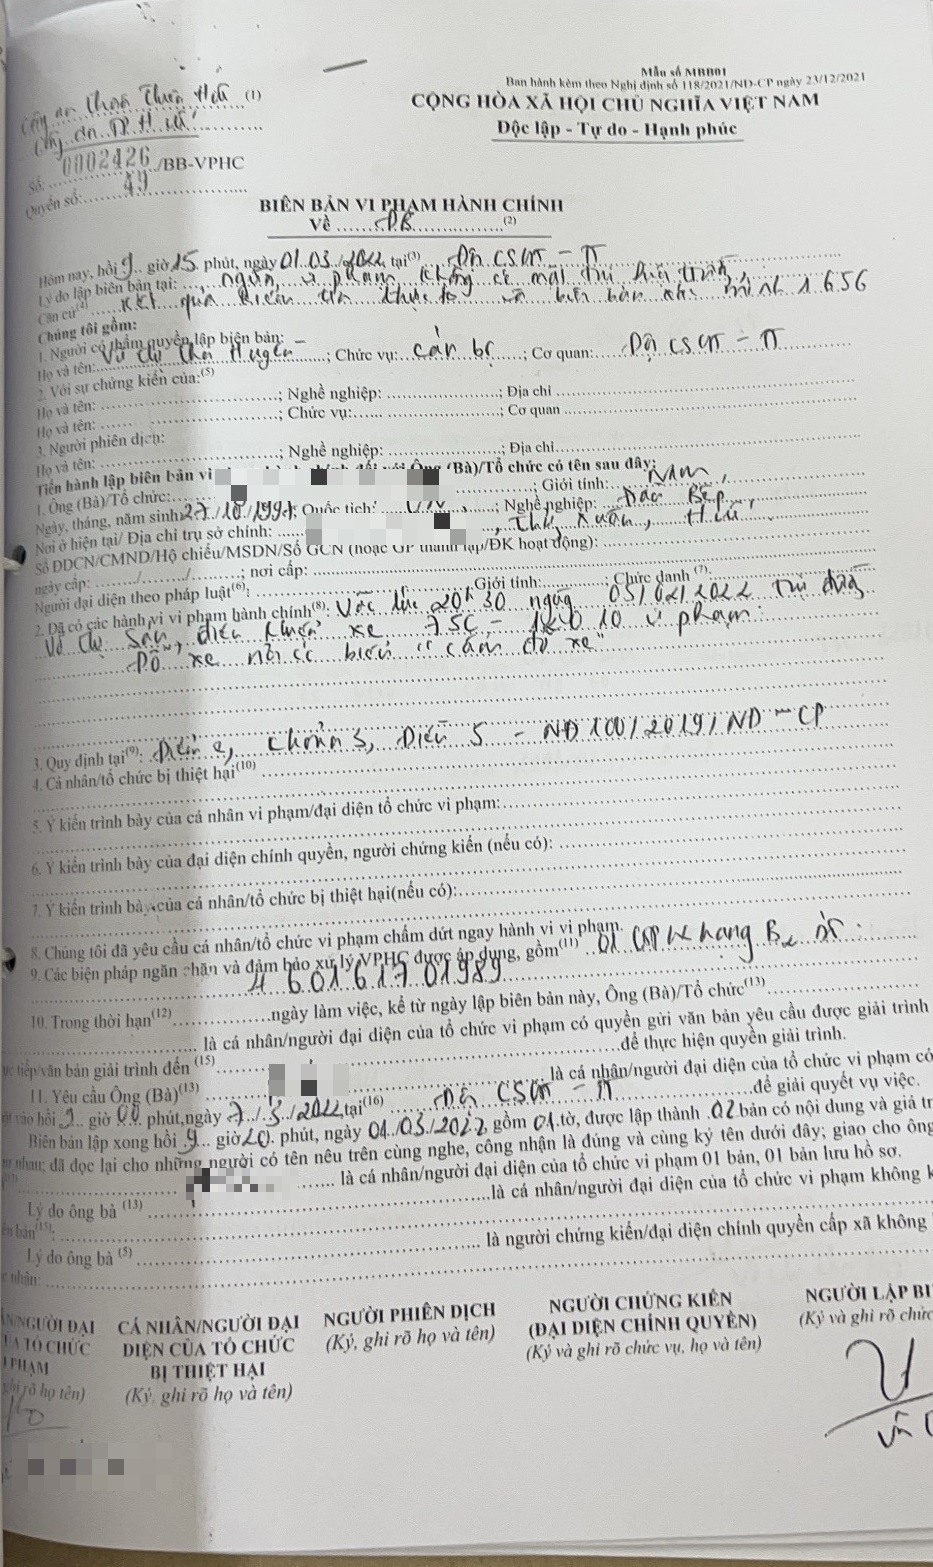 Mẫu số MBB01
Ban hành kèm theo Nghị định số 118/2021/NĐ-CP ngày 23/12/2021
Công an tỉnh Thừa Thiên Huế (1)
CỘNG HÒA XÃ HỘI CHỦ NGHĨA VIỆT NAM
Công an TP Huế
Độc lập - Tự do - Hạnh phúc
Số: 0002426 /BB-VPHC
Quyển số: 49
BIÊN BẢN VI PHẠM HÀNH CHÍNH
Về ĐB (2)
Hôm nay, hồi 9 giờ 15 phút, ngày 01.03./2022 tại(3) Đội CSGT - TT
Lý do lập biên bản tại: người vi phạm không có mặt tại hiện trường
Căn cứ(4) kết quả kiểm tra thực tế và biên bản xác minh 1656
Chúng tôi gồm:
1. Người có thẩm quyền lập biên bản:
Họ và tên: Huyền ; Chức vụ: cán bộ ; Cơ quan: Đội CSGT - TT
2. Với sự chứng kiến của:(5)
Họ và tên: ; Nghề nghiệp: ; Địa chỉ
Họ và tên: ; Chức vụ: ; Cơ quan
3. Người phiên dịch:
Họ và tên: ; Nghề nghiệp: ; Địa chỉ
Tiến hành lập biên bản vi (Bà)/Tổ chức có tên sau đây:
1. Ông (Bà)/Tổ chức: ; Giới tính: Nam
Ngày, tháng, năm sinh: 27/10/1994; Quốc tịch: VN ; Nghề nghiệp: Đầu Bếp
Nơi ở hiện tại/ Địa chỉ trụ sở chính: Xuân, Huế
Số ĐDCN/CMND/Hộ chiếu/MSDN/Số GCN (hoặc GP thành lập/ĐK hoạt động):
ngày cấp: ; nơi cấp:
Người đại diện theo pháp luật(6): Giới tính: ; Chức danh (7):
2. Đã có các hành vi vi phạm hành chính(8): Vào lúc 20h30 ngày 05/02/2022 tại đường
Võ Thị Sáu, điều khiển xe 75C - vi phạm:
Đỗ xe nơi có biển "cấm đỗ xe"
3. Quy định tại(9): Điểm e, khoản 3, Điều 5 - NĐ 100/2019/NĐ-CP
4. Cá nhân/tổ chức bị thiệt hại(10)
5. Ý kiến trình bày của cá nhân vi phạm/đại diện tổ chức vi phạm:
6. Ý kiến trình bày của đại diện chính quyền, người chứng kiến (nếu có):
7. Ý kiến trình bày của cá nhân/tổ chức bị thiệt hại(nếu có):
8. Chúng tôi đã yêu cầu cá nhân/tổ chức vi phạm chấm dứt ngay hành vi vi phạm.
9. Các biện pháp ngăn chặn và đảm bảo xử lý VPHC được áp dụng, gồm(11) 01 GPLX hạng B2 số:
460161701989
10. Trong thời hạn(12) ngày làm việc, kể từ ngày lập biên bản này, Ông (Bà)/Tổ chức(13)
là cá nhân/người đại diện của tổ chức vi phạm có quyền gửi văn bản yêu cầu được giải trình
tiếp/văn bản giải trình đến (15) để thực hiện quyền giải trình.
11. Yêu cầu Ông (Bà)(13) là cá nhân/người đại diện của tổ chức vi phạm có
vào hồi 9 giờ 00 phút, ngày 7/3/2022 tại(16) Đội CSGT - TT để giải quyết vụ việc.
Biên bản lập xong hồi 9 giờ 20 phút, ngày 01/03/2022, gồm 01 tờ, được lập thành 02 bản có nội dung và giá tr
nhau; đã đọc lại cho những người có tên nêu trên cùng nghe, công nhận là đúng và cùng ký tên dưới đây; giao cho ông
là cá nhân/người đại diện của tổ chức vi phạm 01 bản, 01 bản lưu hồ sơ.
Lý do ông bà (13) là cá nhân/người đại diện của tổ chức vi phạm không k
bản(15):
Lý do ông bà (5) là người chứng kiến/đại diện chính quyền cấp xã không
nhận:
NGƯỜI ĐẠI CÁ NHÂN/NGƯỜI ĐẠI NGƯỜI PHIÊN DỊCH NGƯỜI CHỨNG KIẾN NGƯỜI LẬP BI
TỔ CHỨC DIỆN CỦA TỔ CHỨC (Ký, ghi rõ họ và tên) (ĐẠI DIỆN CHÍNH QUYỀN) (Ký và ghi rõ chức
PHẠM BỊ THIỆT HẠI (Ký và ghi rõ chức vụ, họ và tên)
ghi rõ họ tên) (Ký, ghi rõ họ và tên)